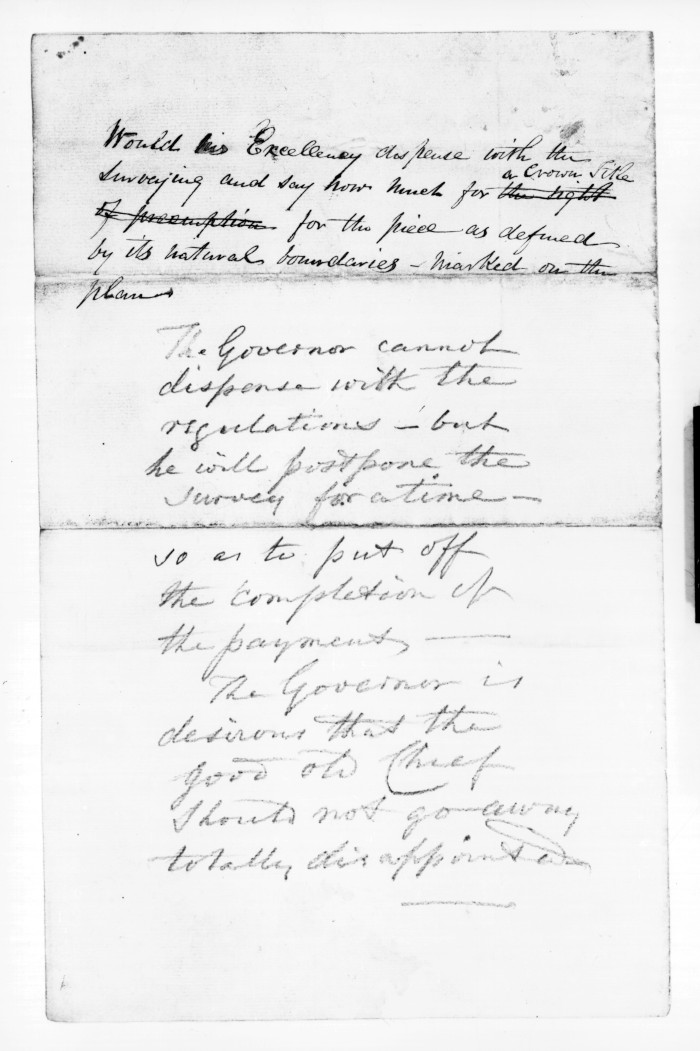 Would his Excellency dispense with the
surveying and say how much for the right a Crown Title
of preemption for the piece as defined
by its natural boundaries - marked on the
plan
The Governor cannot
dispense with the
regulations - but
he will postpone the
survey for a time -
so as to put off
the completion of
the payment, -
The Governor is
desirous that the
good old Chief
should not go away
totally disappointed